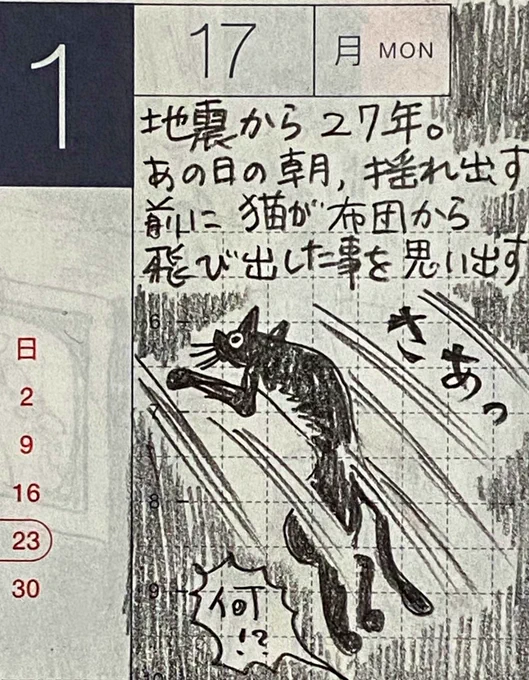 1
17
月 MON
地震から27年。
あの日の朝、揺れ出す
前に 猫が布団から
飛び出した事を思い出す
日
2
9
16
23
30
6
7
8
9
10
さあっ
何!?